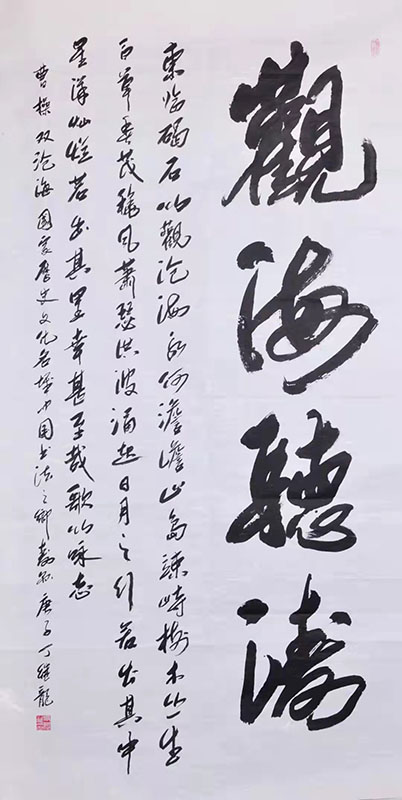 觀海聽濤
東临碣石以觀沧海水何澹澹山島竦峙樹木丛生
百草丰茂秋风蕭瑟洪波涌起日月之行若出其中
星漢灿烂若出其里幸甚至哉歌以咏志
曹操观沧海国家历史文化名城中国书法之鄉庚子丁继龍